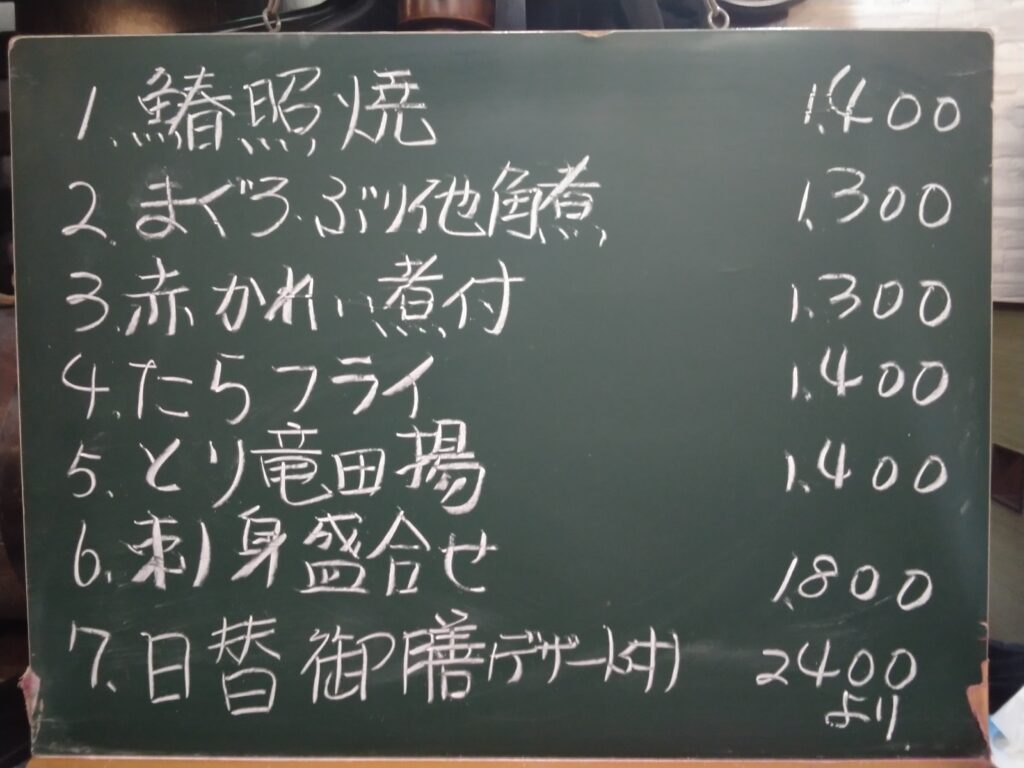 1. 鰆照焼 1.400
2. まぐろ.ぶり他角煮 1.300
3. 赤かれい煮付 1.300
4. たらフライ 1.400
5. とり竜田揚 1.400
6. 刺身盛合せ 1.800
7. 日替御膳(デザート付) 2400
より